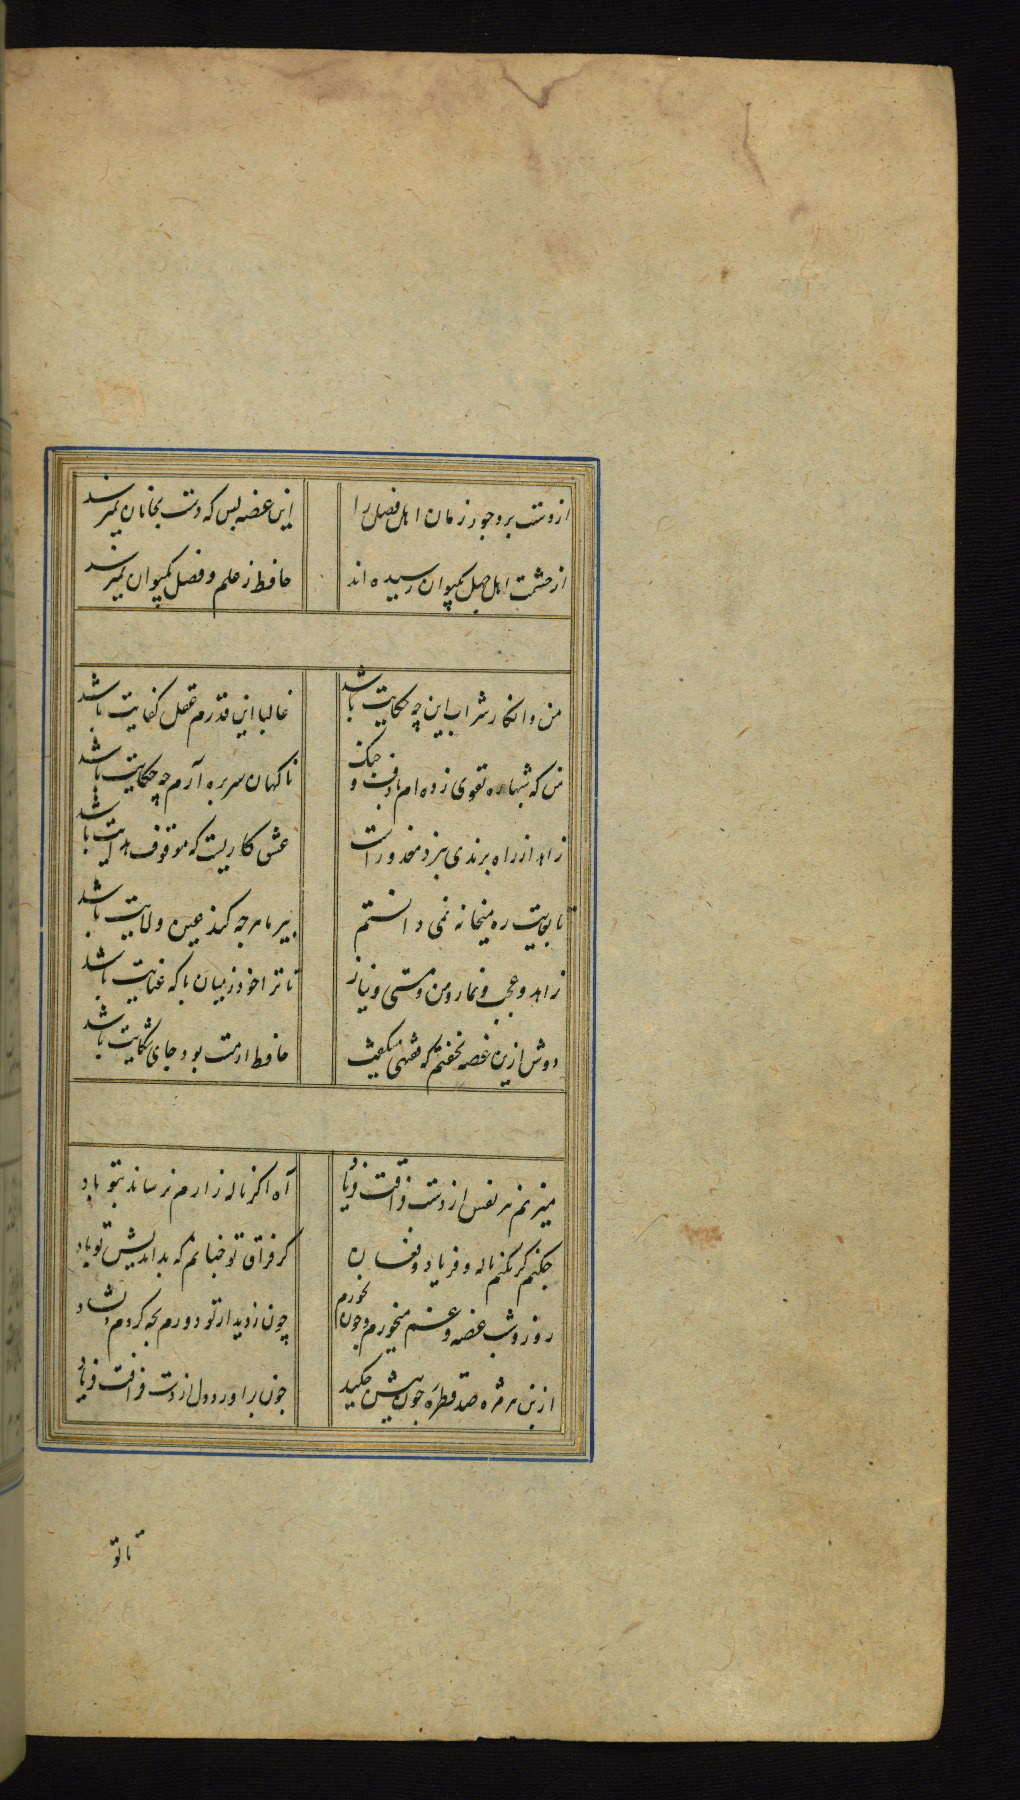 از دست برد جور زمان اهل فضل را
این غصه بس که دست بجانان نمیرسد
از حشمت اهل جهل بکیوان رسیده اند
حافظ ز علم و فضل بکیوان نمیرسد
من و انکار شراب این چه حکایت باشد
غالبا این قدرم عقل کفایت باشد
من که شبها ره تقوی زده ام با دف و چنک
ناکهان سر بره آرم چه حکایت باشد
زاهد ار راه برندی نبرد معذور است
عشق کاریست که موقوف هدایت باشد
تا بغایت ره میخانه نمی دانستم
پیر ما هر چه کند عین ولایت باشد
زاهد و عجب و نماز و من و مستی و نیاز
تا ترا خود ز میان با که عنایت باشد
دوش ازین غصه نخفتم که فقیهی میکفت
حافظ ار مست بود جای شکایت باشد
میزنم هر نفس از دست فراقت فریاد
آه اکر ناله زارم نرساند بتو باد
چکنم کر نکنم ناله و فریاد و فغان
کز فراق تو چنانم که بداندیش تو باد
روز و شب غصه و غم میخورم و چون نخورم
چون ز دیدار تو دورم بچه کردم دلشاد
از بن هر مژه صد قطره خون بیش چکید
چون برآورد دل از دست فراقت فریاد
تا تو